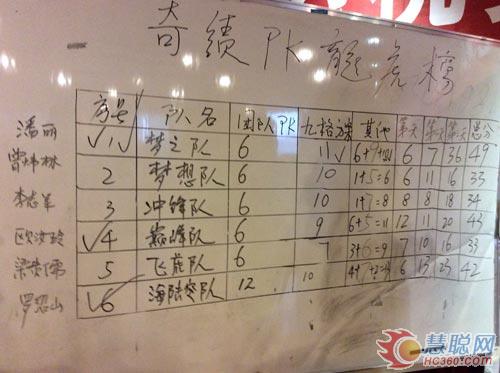 奇绩PK龍虎榜
序号 队名 团队PK 九格方案 其他 第一天 第二天 第三天 总分
潘丽 √1 梦之队 6 11 6 7 36 49
曾炜林 2 梦想队 6 10 1+5=6 6 11 16 33
李志军 3 冲锋队 6 10 1+7=8 8 8 18 34
√4 巅峰队 6 9 6+5=11 12 11 20 43
5 飞虎队 6 7 3+6=9 7 10 16 33
√6 海陆空队 12 10 6 13 23 42
慧聪网
HC360.COM